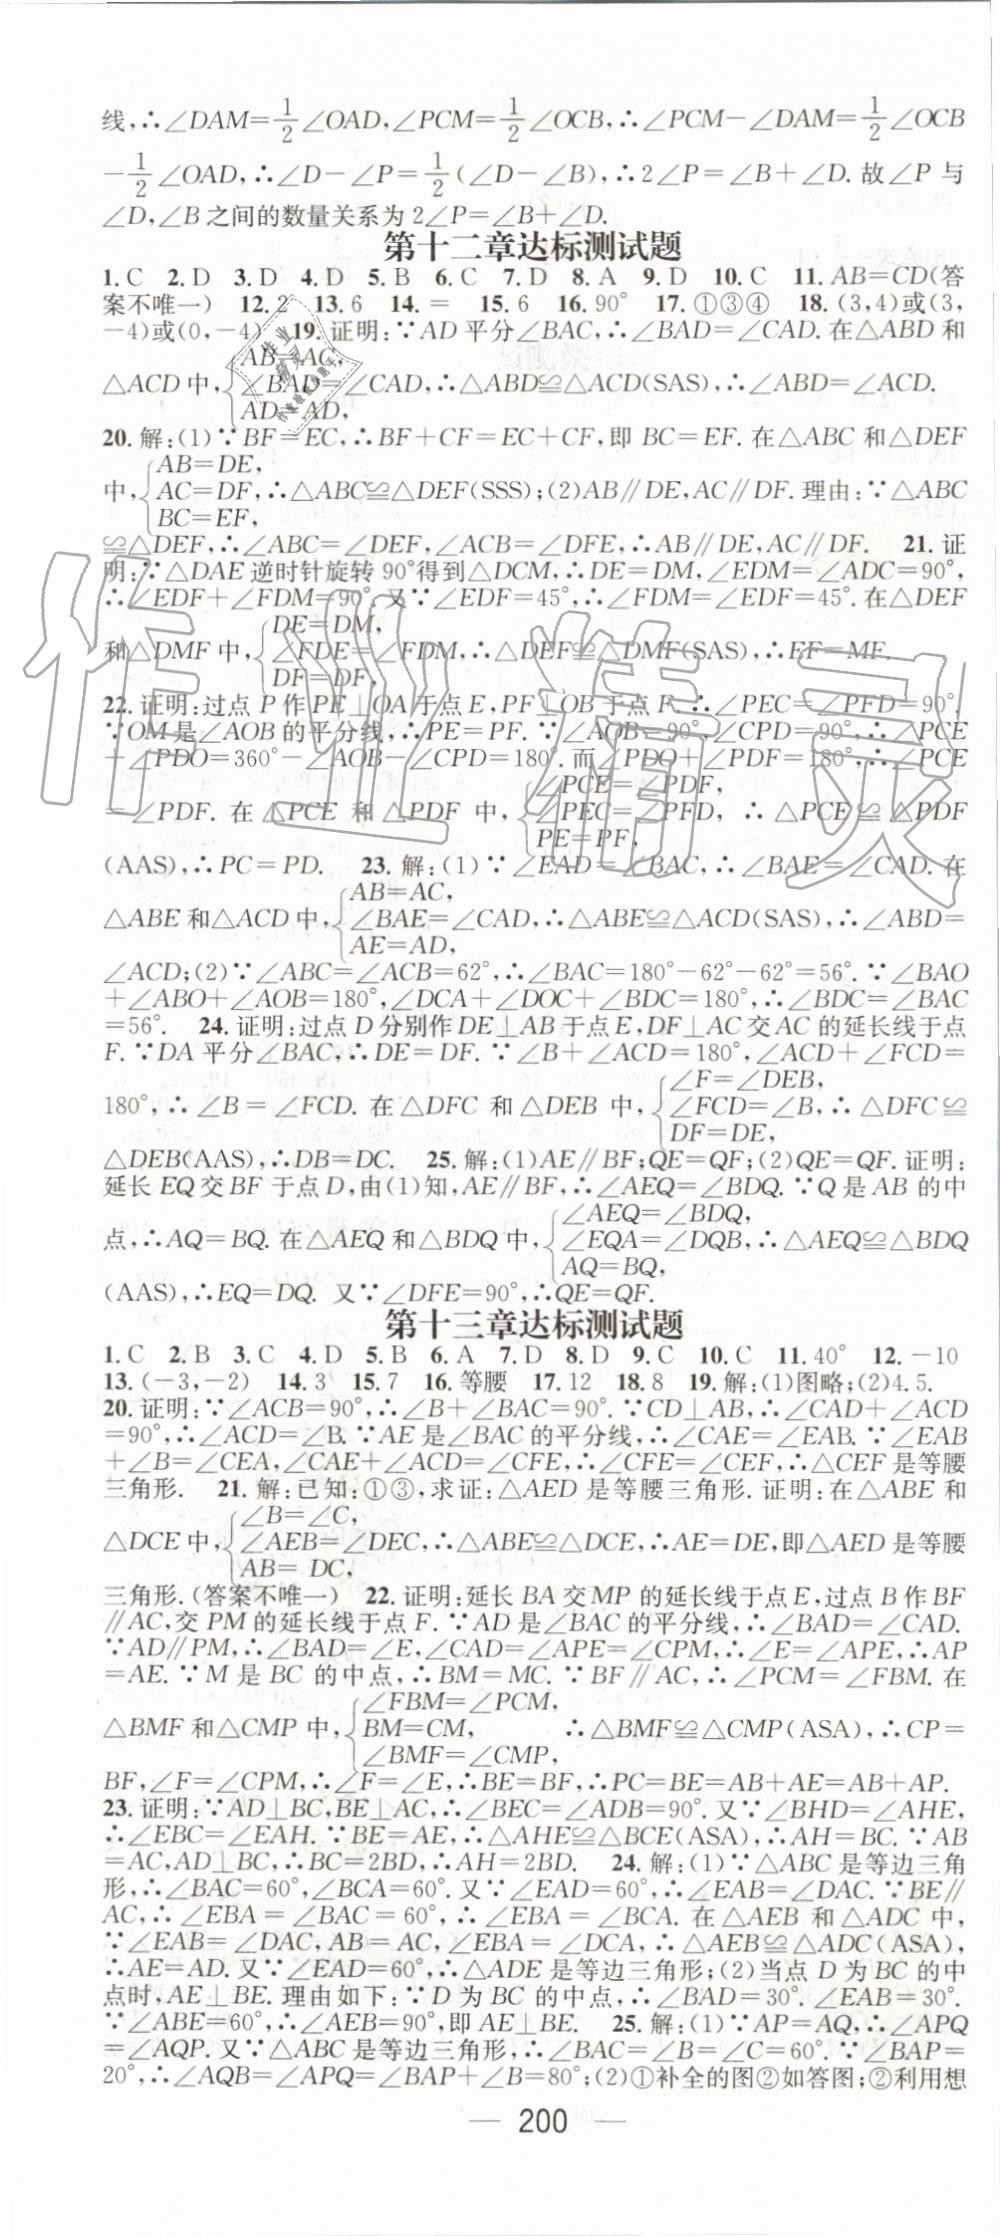 线,∴∠DAM=1/2∠OAD,∠PCM=1/2∠OCB,∴∠PCM-∠DAM=1/2∠OCB
-1/2∠OAD,∴∠D-∠P=1/2(∠D-∠B),∴2∠P=∠B+∠D.故∠P与
∠D,∠B之间的数量关系为2∠P=∠B+∠D.
第十二章达标测试题
1.C 2.D 3.D 4.D 5.B 6.C 7.D 8.A 9.D 10.C 11.AB=CD(答
案不唯一) 12.2 13.6 14.= 15.6 16.90° 17.①③④ 18.(3,4)或(3,
-4)或(0,-4) 19.证明:∵AD平分∠BAC,∴∠BAD=∠CAD.在△ABD和
AB=AC,
△ACD中,{∠BAD=∠CAD,∴△ABD≌△ACD(SAS),∴∠ABD=∠ACD.
AD=AD,
20.解:(1)∵BF=EC,∴BF+CF=EC+CF,即BC=EF.在△ABC和△DEF
AB=DE,
中,{AC=DF,∴△ABC≌△DEF(SSS);(2)AB∥DE,AC∥DF.理由:∵△ABC
BC=EF,
≌△DEF,∴∠ABC=∠DEF,∠ACB=∠DFE,∴AB∥DE,AC∥DF. 21.证
明:∵△DAE逆时针旋转90°得到△DCM,∴DE=DM,∠EDM=∠ADC=90°,
∴∠EDF+∠FDM=90°.又∵∠EDF=45°,∴∠FDM=∠EDF=45°.在△DEF
DE=DM,
和△DMF中,{∠FDE=∠FDM,∴△DEF≌△DMF(SAS),∴EF=MF.
DF=DF,
22.证明:过点P作PE⊥OA于点E,PF⊥OB于点F.∴∠PEC=∠PFD=90°.
∵OM是∠AOB的平分线,∴PE=PF.∵∠AOB=90°,∠CPD=90°,∴∠PCE
+∠PDO=360°-∠AOB-∠CPD=180°.而∠PDO+∠PDF=180°,∴∠PCE
∠PCE=∠PDF,
=∠PDF.在△PCE和△PDF中,{∠PEC=∠PFD,∴△PCE≌△PDF
PE=PF,
(AAS),∴PC=PD. 23.解:(1)∵∠EAD=∠BAC,∴∠BAE=∠CAD.在
AB=AC,
△ABE和△ACD中,{∠BAE=∠CAD,∴△ABE≌△ACD(SAS),∴∠ABD=
AE=AD,
∠ACD;(2)∵∠ABC=∠ACB=62°,∴∠BAC=180°-62°-62°=56°.∵∠BAO
+∠ABO+∠AOB=180°,∠DCA+∠DOC+∠BDC=180°,∴∠BDC=∠BAC
=56°. 24.证明:过点D分别作DE⊥AB于点E,DF⊥AC交AC的延长线于点
F.∵DA平分∠BAC,∴DE=DF.∵∠B+∠ACD=180°,∠ACD+∠FCD=
∠F=∠DEB,
180°,∴∠B=∠FCD.在△DFC和△DEB中,{∠FCD=∠B,∴△DFC≌
DF=DE,
△DEB(AAS),∴DB=DC. 25.解:(1)AE∥BF;QE=QF;(2)QE=QF.证明:
延长EQ交BF于点D,由(1)知,AE∥BF,∴∠AEQ=∠BDQ.∵Q是AB的中
∠AEQ=∠BDQ,
点,∴AQ=BQ.在△AEQ和△BDQ中,{∠EQA=∠DQB,∴△AEQ≌△BDQ
AQ=BQ,
(AAS),∴EQ=DQ.又∵∠DFE=90°,∴QE=QF.
第十三章达标测试题
1.C 2.B 3.C 4.D 5.B 6.A 7.D 8.D 9.C 10.C 11.40° 12.-10
13.(-3,-2) 14.3 15.7 16.等腰 17.12 18.8 19.解:(1)图略;(2)4.5.
20.证明:∵∠ACB=90°,∴∠B+∠BAC=90°.∵CD⊥AB,∴∠CAD+∠ACD
=90°,∴∠ACD=∠B.∵AE是∠BAC的平分线,∴∠CAE=∠EAB.∵∠EAB
+∠B=∠CEA,∠CAE+∠ACD=∠CFE,∴∠CFE=∠CEF,∴△CEF是等腰
三角形. 21.解:已知:①③,求证:△AED是等腰三角形.证明:在△ABE和
∠B=∠C,
△DCE中,{∠AEB=∠DEC,∴△ABE≌△DCE,∴AE=DE,即△AED是等腰
AB=DC,
三角形.(答案不唯一) 22.证明:延长BA交MP的延长线于点E,过点B作BF
∥AC,交PM的延长线于点F.∵AD是∠BAC的平分线,∴∠BAD=∠CAD.
∵AD∥PM,∴∠BAD=∠E,∠CAD=∠APE=∠CPM,∴∠E=∠APE,∴AP
=AE.∵M是BC的中点,∴BM=MC.∵BF∥AC,∴∠PCM=∠FBM.在
∠FBM=∠PCM,
△BMF和△CMP中,{BM=CM, ∴△BMF≌△CMP(ASA),∴CP=
∠BMF=∠CMP,
BF,∠F=∠CPM,∴∠F=∠E,∴BE=BF,∴PC=BE=AB+AE=AB+AP.
23.证明:∵AD⊥BC,BE⊥AC,∴∠BEC=∠ADB=90°.又∵∠BHD=∠AHE,
∴∠EBC=∠EAH.∵BE=AE,∴△AHE≌△BCE(ASA),∴AH=BC.∵AB
=AC,AD⊥BC,∴BC=2BD,∴AH=2BD. 24.解:(1)∵△ABC是等边三角
形,∴∠BAC=60°,∠BCA=60°.又∵∠EAD=60°,∴∠EAB=∠DAC.∵BE∥
AC,∴∠EBA=∠BAC=60°,∴∠EBA=∠BCA.在△AEB和△ADC中,
∵∠EAB=∠DAC,AB=AC,∠EBA=∠DCA,∴△AEB≌△ADC(ASA),
∴AE=AD.又∵∠EAD=60°,∴△ADE是等边三角形;(2)当点D为BC的中
点时,AE⊥BE.理由如下:∵D为BC的中点,∴∠BAD=30°.∠EAB=30°.
∵∠ABE=60°,∴∠AEB=90°,即AE⊥BE. 25.解:(1)∵AP=AQ,∴∠APQ
=∠AQP.又∵△ABC是等边三角形,∴∠BAC=∠B=∠C=60°.∵∠BAP=
20°,∴∠AQB=∠APQ=∠BAP+∠B=80°;(2)①补全的图②如答图;②利用想
— 200 —
作业精灵